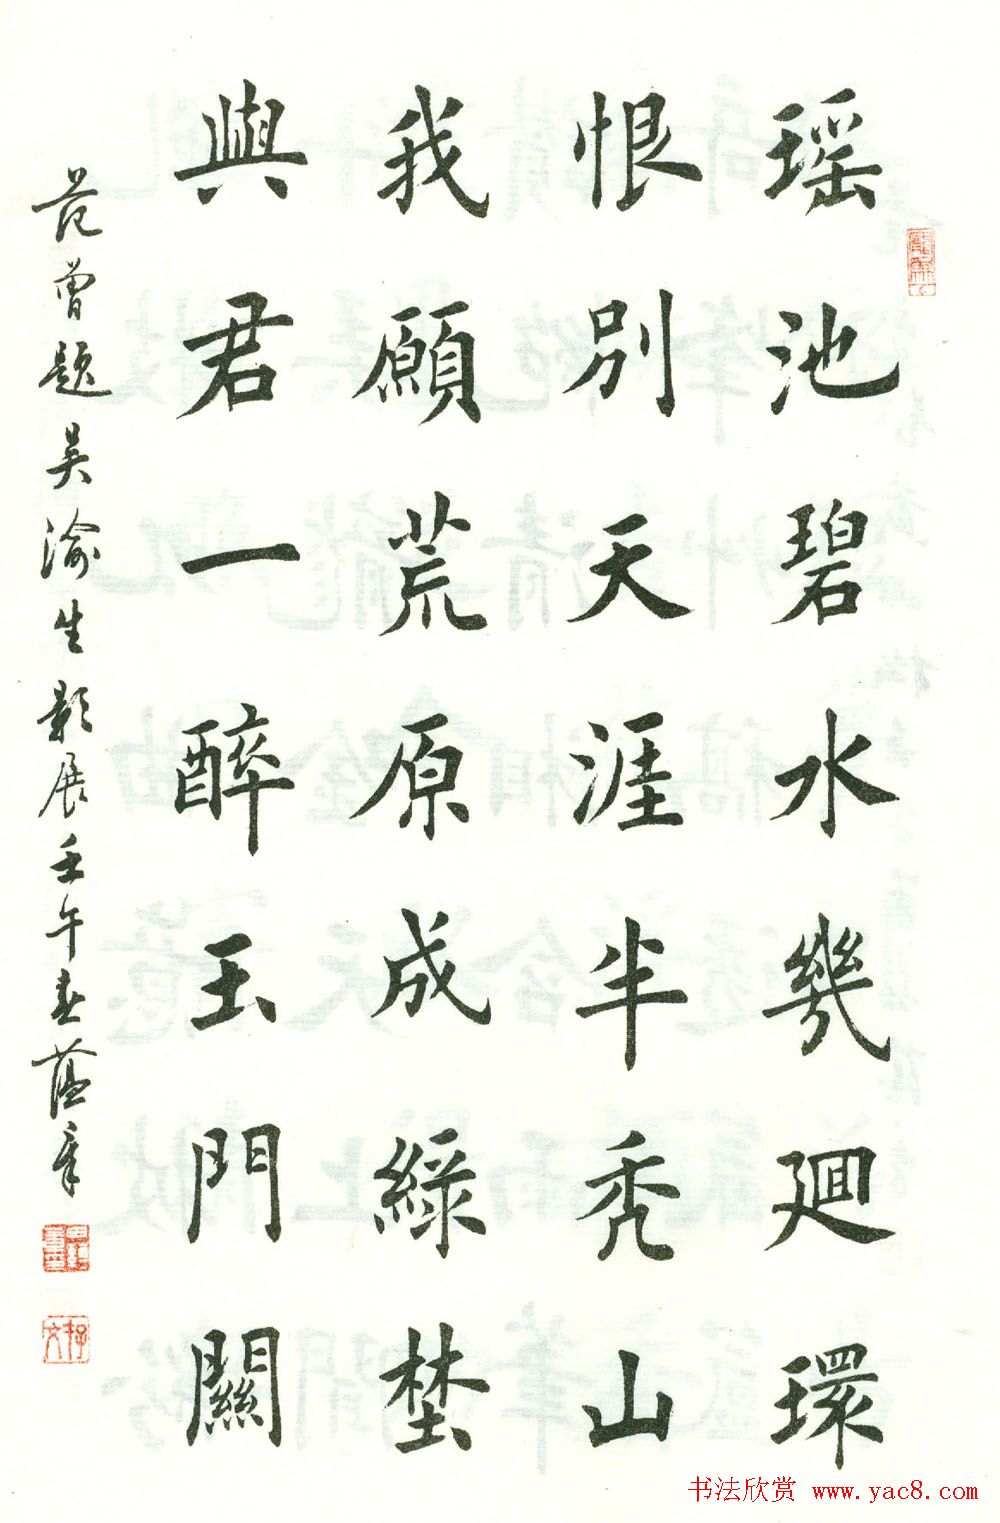 瑶池碧水幾廻環
恨別天涯半秃山
我願荒原成綠埜
與君一醉玉門關
范曾題吴渝生影展壬午春蕴章
书法欣赏 www.yac8.com